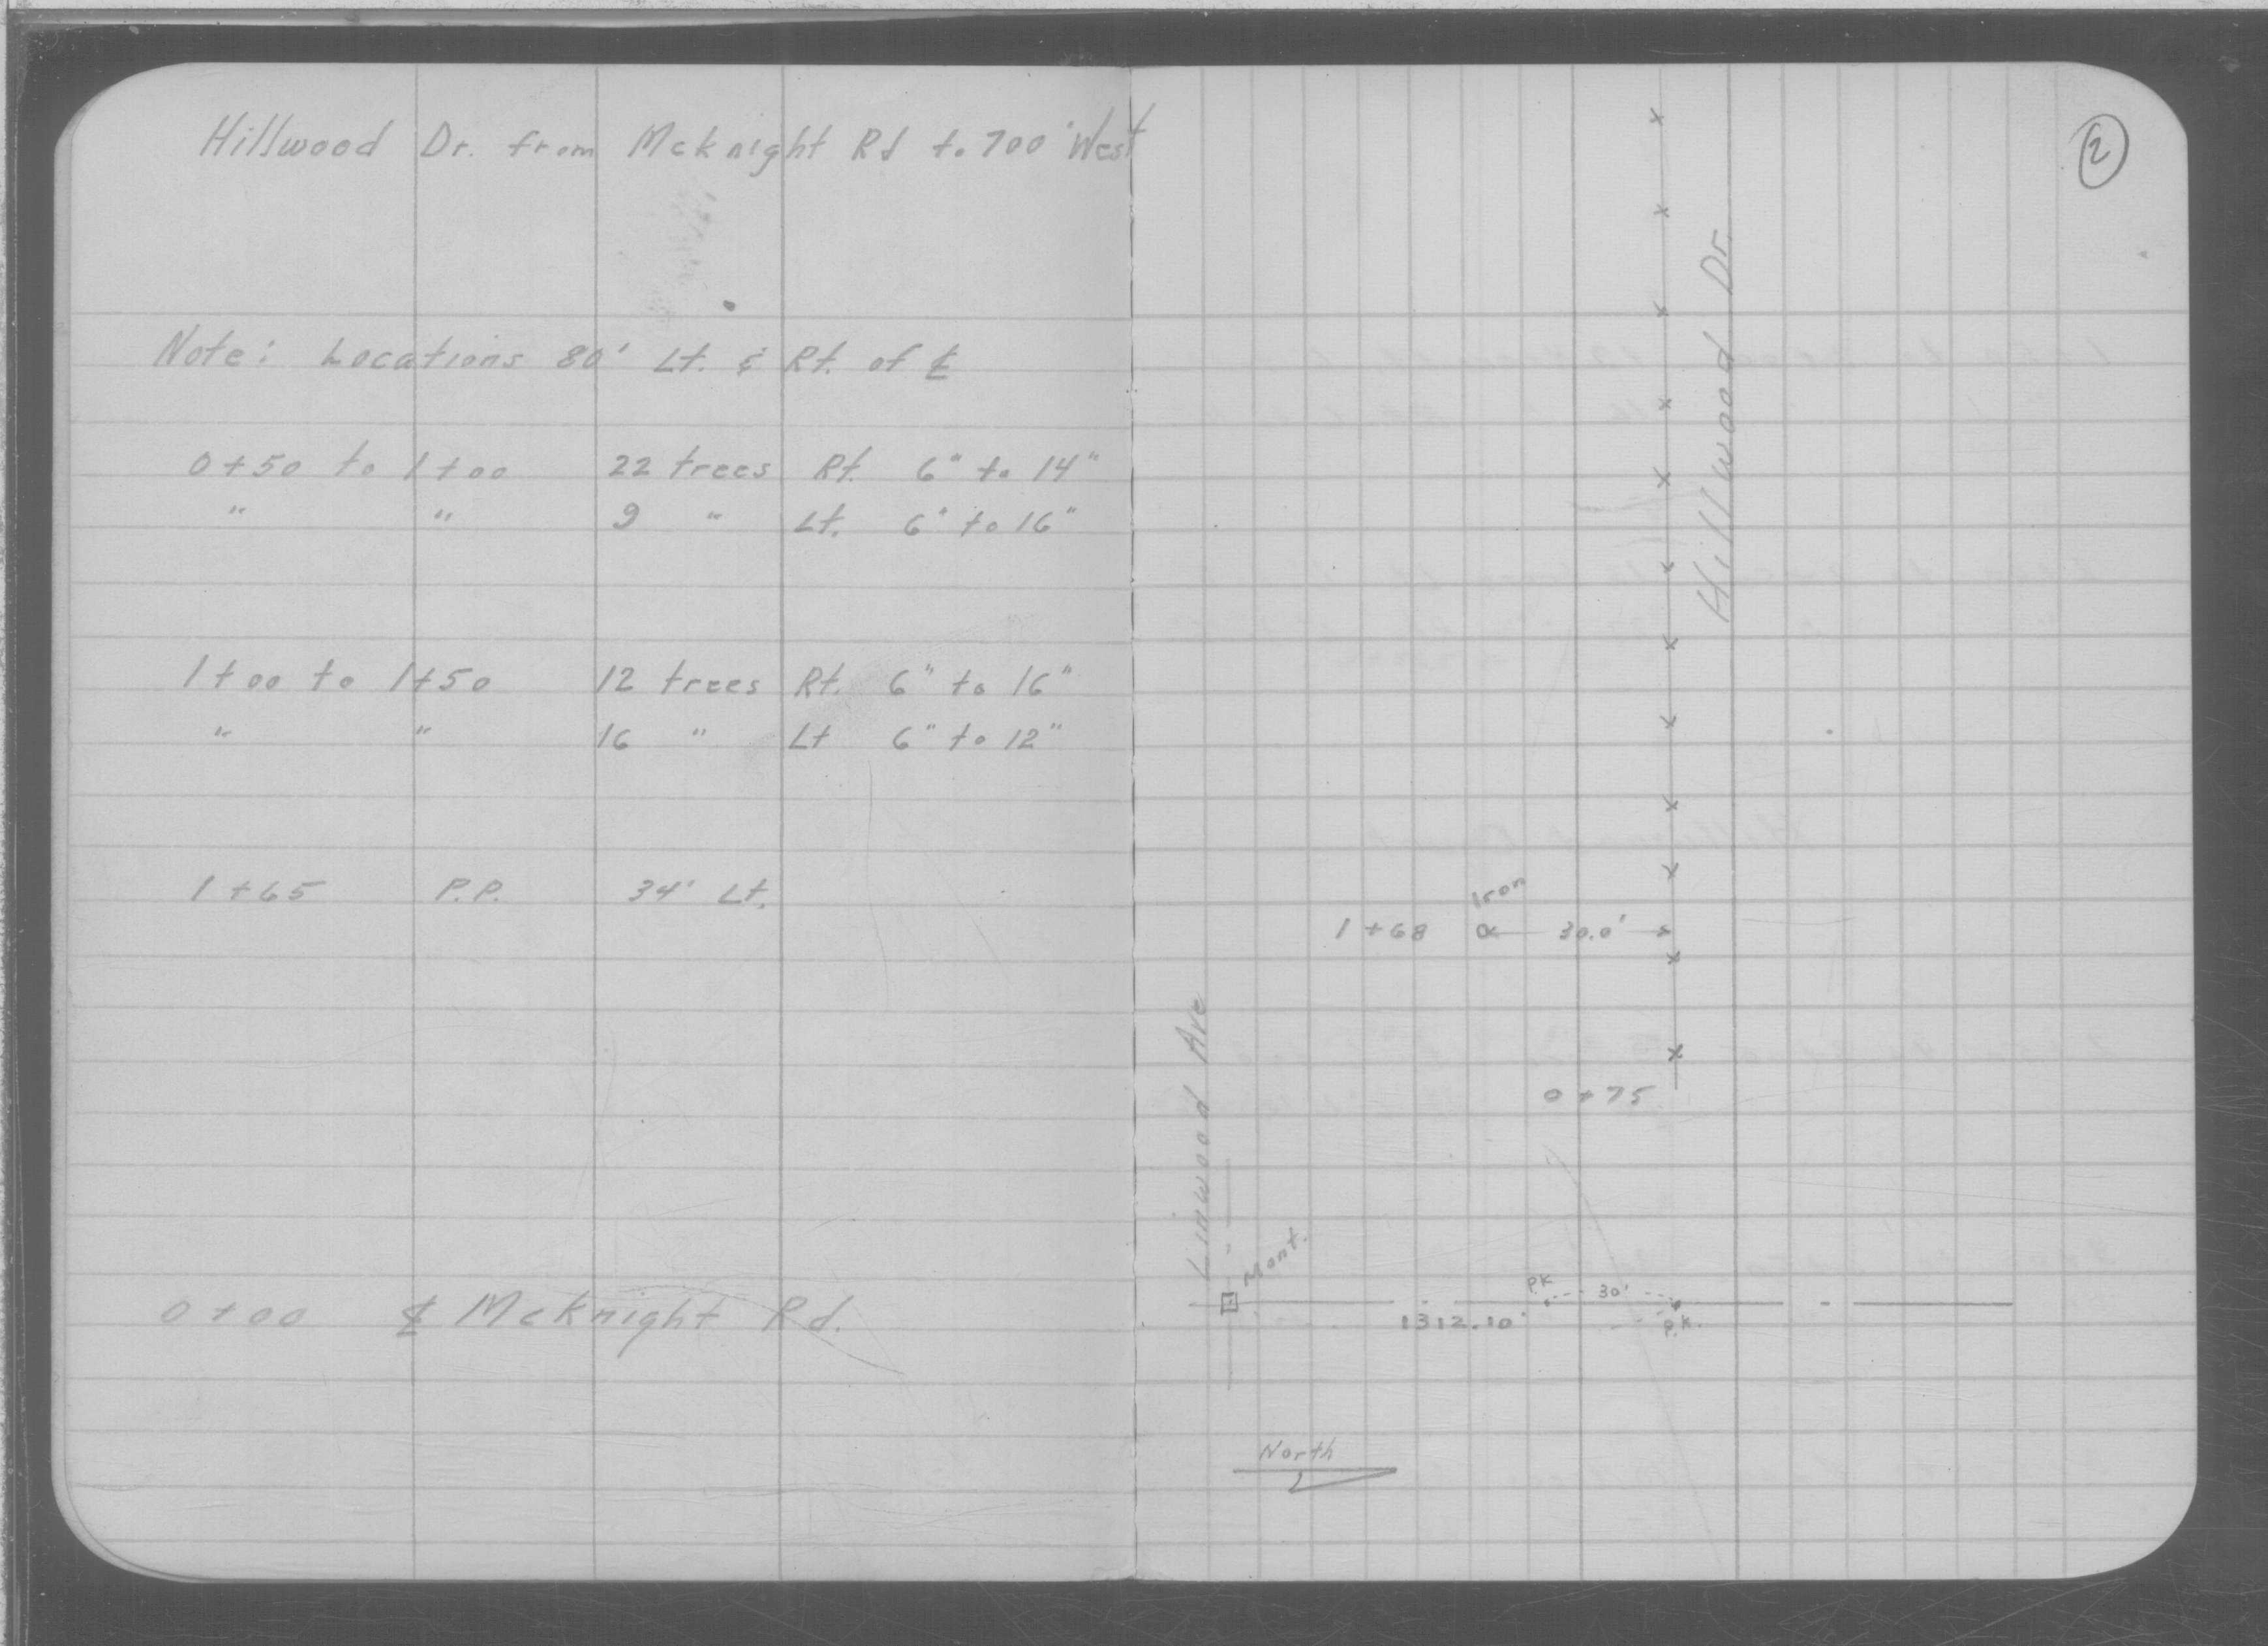 Hillwood Dr. from Mcknight Rd to 700' West
Note: Locations 80' Lt. & Rt. of ℄
0+50 to 1+00 22 trees Rt. 6" to 14"
" " 9 " Lt. 6" to 16"
1+00 to 1+50 12 trees Rt. 6" to 16"
" " 16 " Lt 6" to 12"
1+65 P.P. 34' Lt.
0+00 ℄ Mcknight Rd.
2
Hillwood Dr.
Iron
1+68 30.0'
0+75
Linwood Ave
Mont.
P.K. 30'
1312.10' P.K.
North